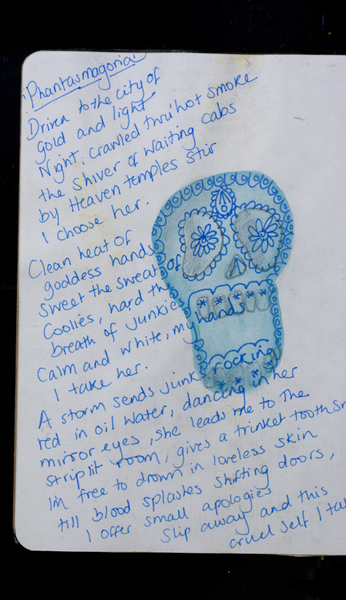 Phantasmagoria
Driven to the city of
gold and light
Night, crawled thru' hot smoke
the shiver of waiting cabs
by Heaven temples stir
I choose her.
Clean heat of
goddess hands
sweat the sweat of
Coolies, hard the
breath of junkies
Calm and white, my hands
I take her.
A storm sends junk rocking
red in oil water, dancing in her
mirror eyes, she leads me to the
striplit room, gives a trinket tooth
I'm free to drown in loveless skin
till blood splashes shifting doors,
I offer small apologies
Slip away and this
cruel self I